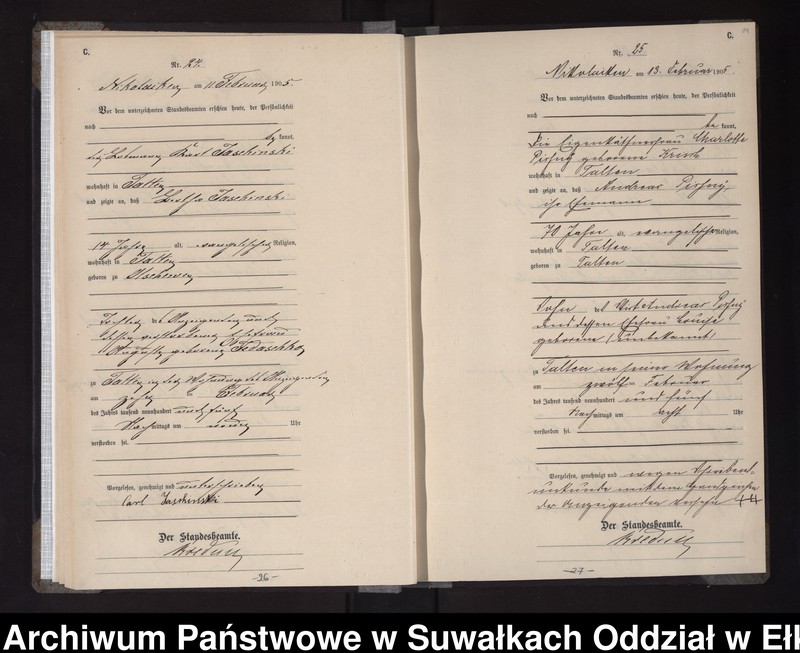 C.
Nr. 24.
Nikolaiken, am 11 Februar 1905.
Vor dem unterzeichneten Standesbeamten erschien heute, der Persönlichkeit
nach
be kannt,
Karl Jaschinski
wohnhaft in Talten
und zeigte an, daß Jaschinski
14 Jahre alt, evangelischer Religion,
wohnhaft in Talten
geboren zu
Tochter des Anzeigenden und
dessen verstorbenen Ehefrau
Auguste geborenen
zu Talten in der Wohnung des Anzeigenden
am zehn ten Februar
des Jahres tausend neunhundert und fünf
Nach mittags um neun Uhr
verstorben sei.
Vorgelesen, genehmigt und unterschrieben
Carl Jaschinski
Der Standesbeamte.
-26-
C.
Nr. 25
Nikolaiken am 13. Februar 1905.
Vor dem unterzeichneten Standesbeamten erschien heute, der Persönlichkeit
nach
be kannt,
die Eigenkäthnerfrau Charlotte
geborene
wohnhaft in Talten
und zeigte an, daß Andreas
ihr Ehemann
70 Jahre alt, evangelischer Religion,
wohnhaft in Talten
geboren zu Talten
Sohn des Andreas
und dessen Ehefrau Louise
geborene (unbekannt)
zu Talten in seiner Wohnung
am zwölf ten Februar
des Jahres tausend neunhundert und fünf
Nach mittags um acht Uhr
verstorben sei.
Vorgelesen, genehmigt und wegen
unkunde mit dem Handzeichen
der Anzeigenden versehn +++
Der Standesbeamte.
-27-
Archiwum Państwowe w Suwałkach Oddział w Ełk